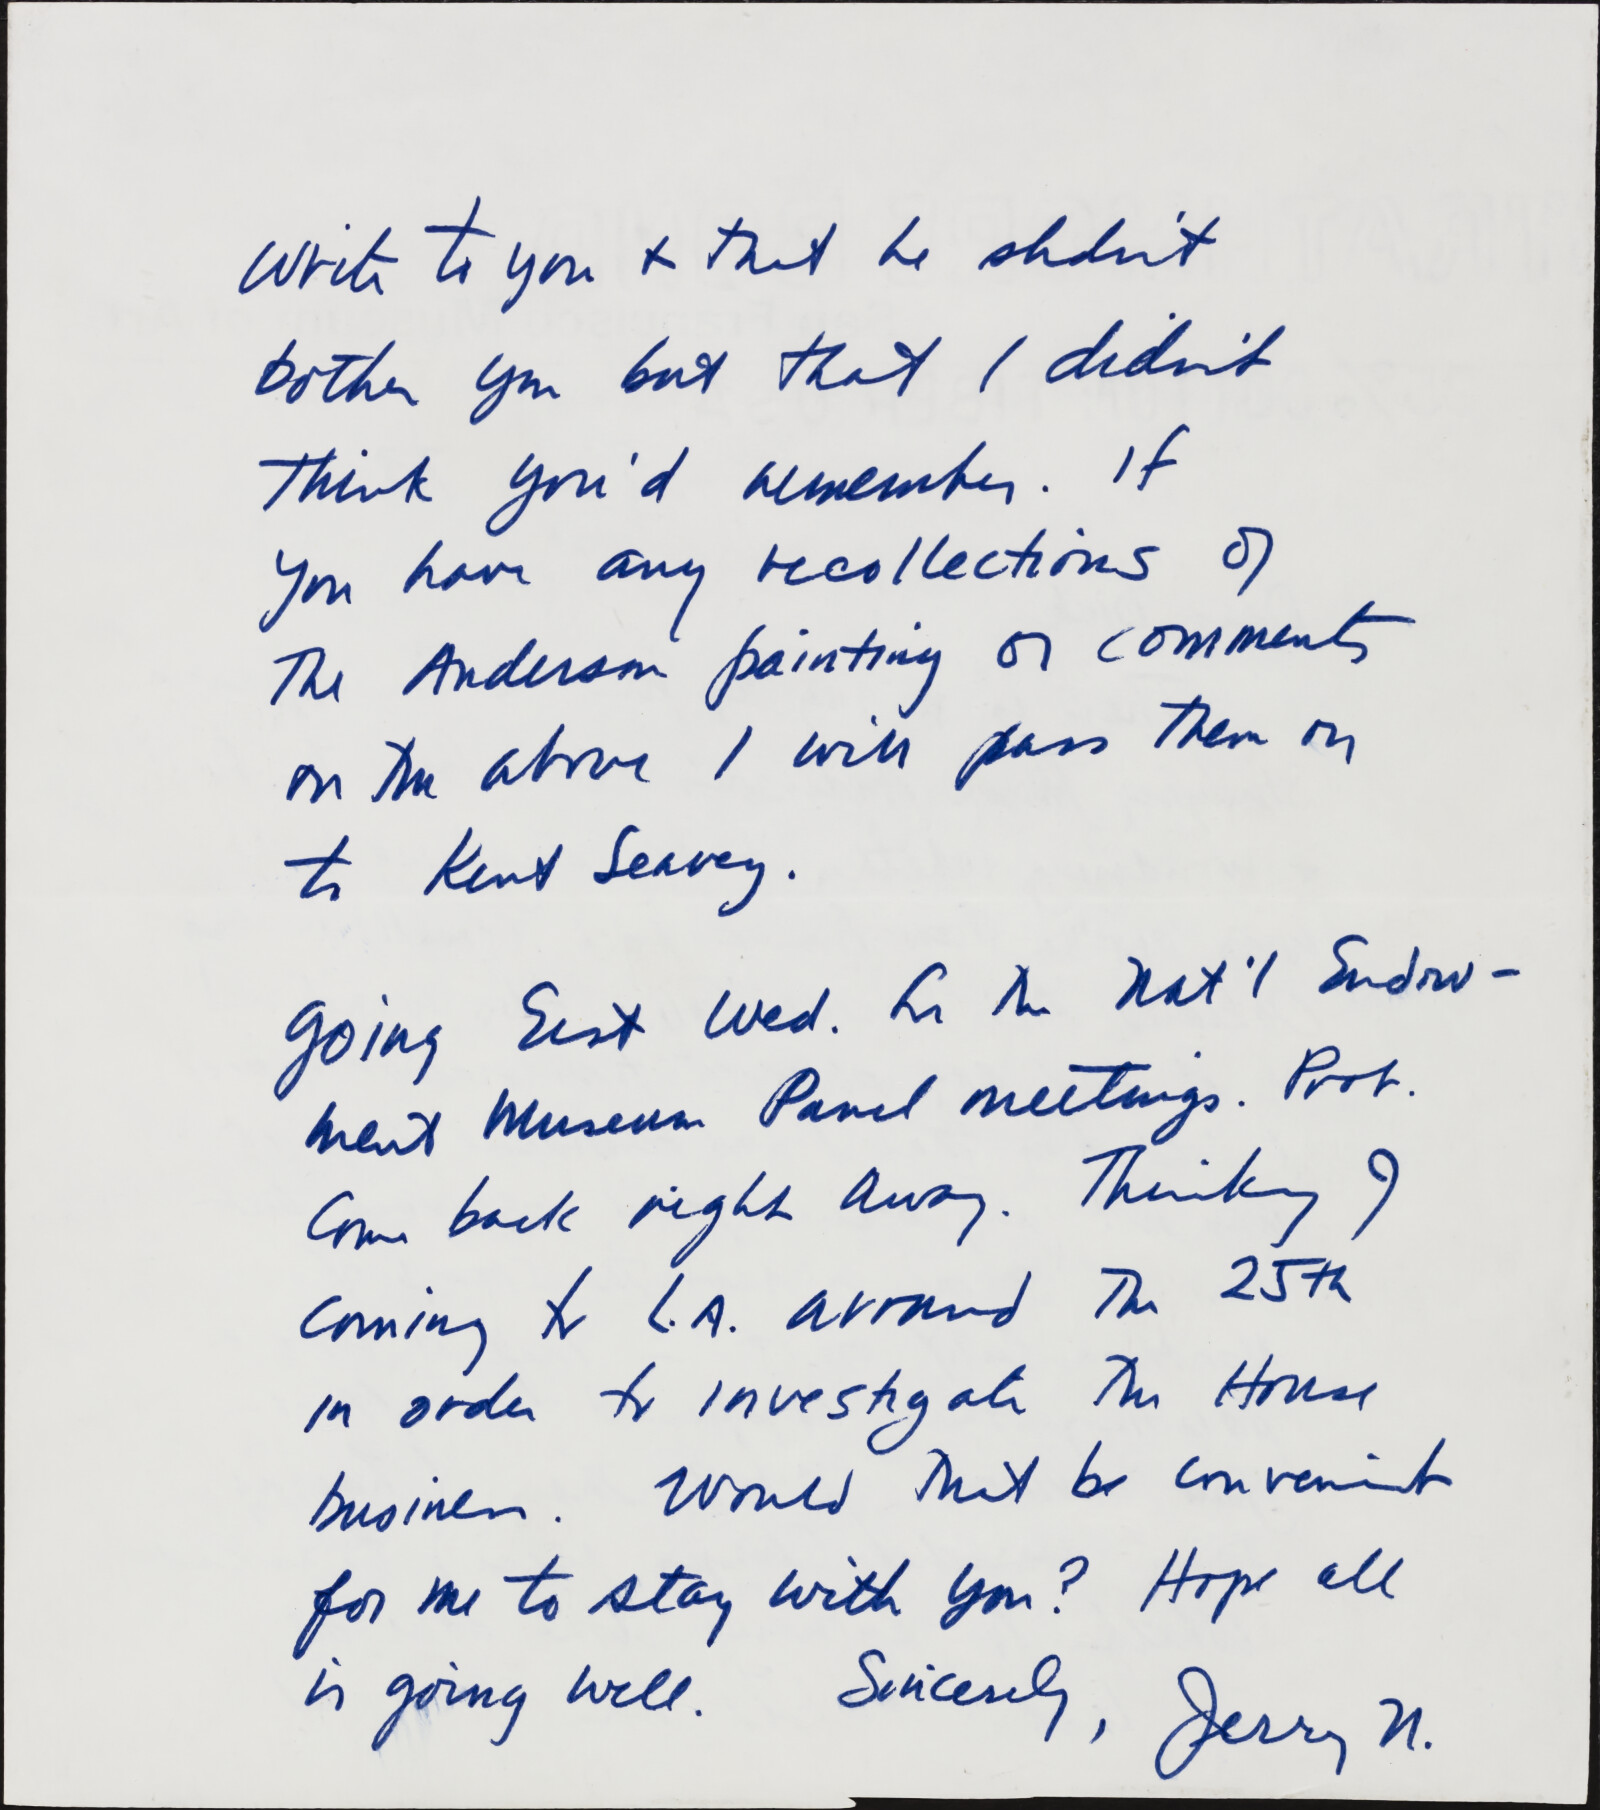 write to you & that he shdn't
bother you but that I didn't
think you'd remember. If
you have any recollections of
the Anderson painting or comments
on the above I will pass them on
to Kent Seavey.
Going East Wed. for the Nat'l Endow-
ment Museum Panel meetings. Prob.
come back right away. Thinking of
coming to L.A. around the 25th
in order to investigate the House
business. Would that be convenient
for me to stay with you? Hope all
is going well. Sincerely, Jerry N.